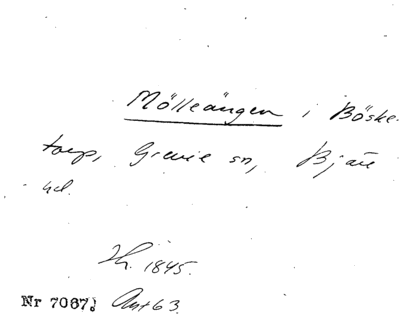 Mölleängen i Böske-
torp, Grevie sn, Bjäre
hd.
1845.
Nr 7067. Ant 63.